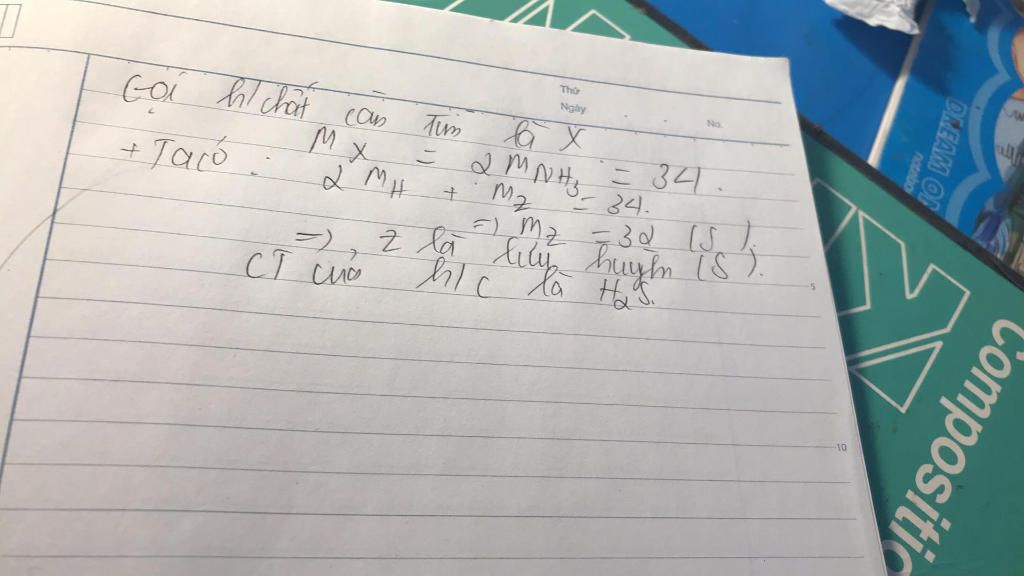 Thứ
Ngày
No.
Gọi h/chất cần tìm là X
+ Ta có : MX = 2 MNH3 = 34.
2 MH + MZ = 34.
=> MZ = 32 (S).
=> Z là lưu huỳnh (S).
CT của h/c là H2S.
5
10
Compositio
DREAM